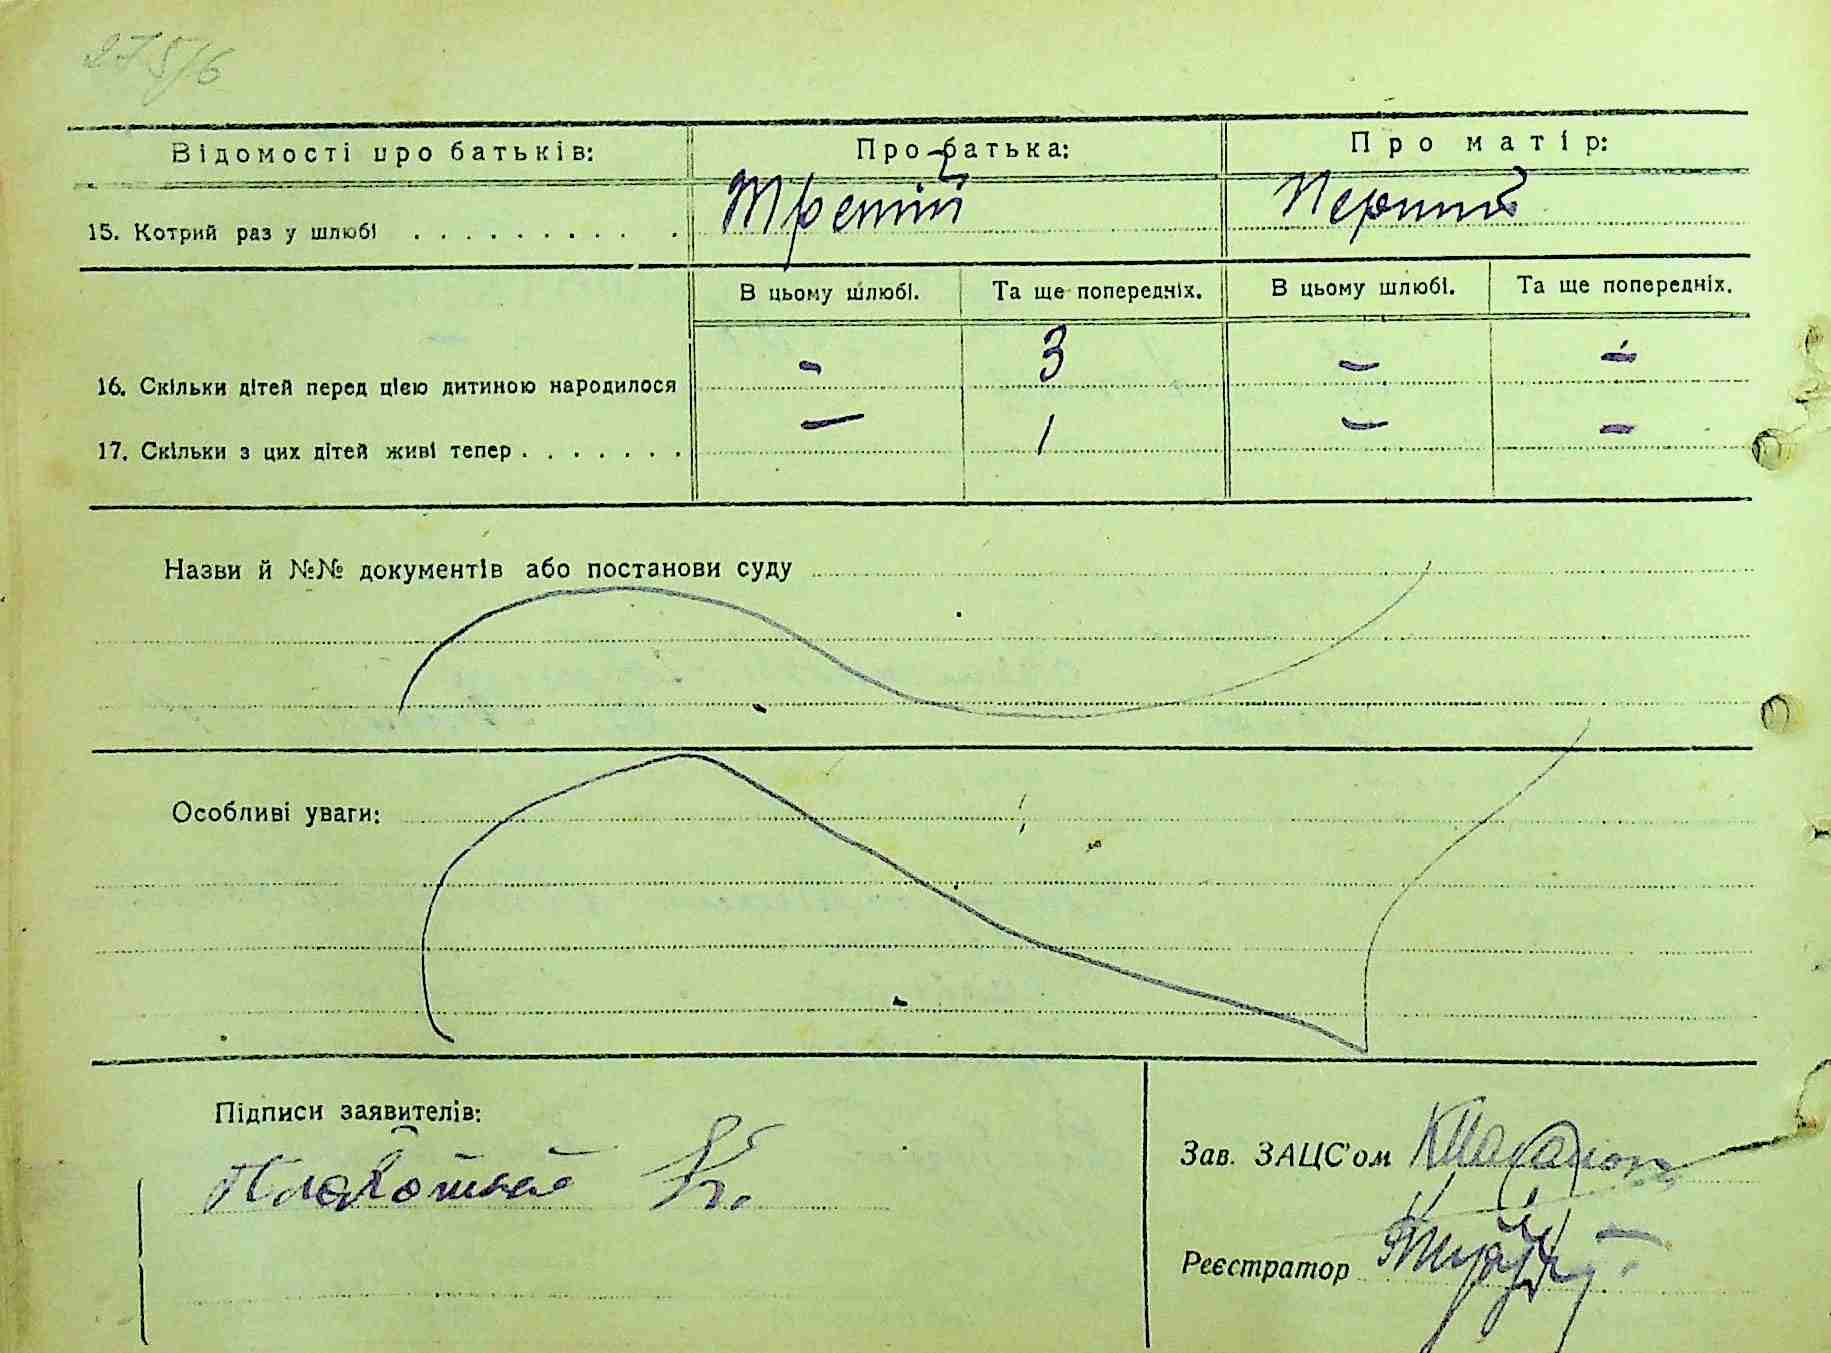 275/6
Відомості про батьків: Про батька: Про матір:
15. Котрий раз у шлюбі . . . . . . . . . . Третій Перший
В цьому шлюбі. Та ще попередніх. В цьому шлюбі. Та ще попередніх.
16. Скільки дітей перед цією дитиною народилося - 3 - -
17. Скільки з цих дітей живі тепер . . . . . . . - 1 - -
Назви й №№ документів або постанови суду
Особливі уваги:
Підписи заявителів:
Зав. ЗАЦС'ом
Реєстратор